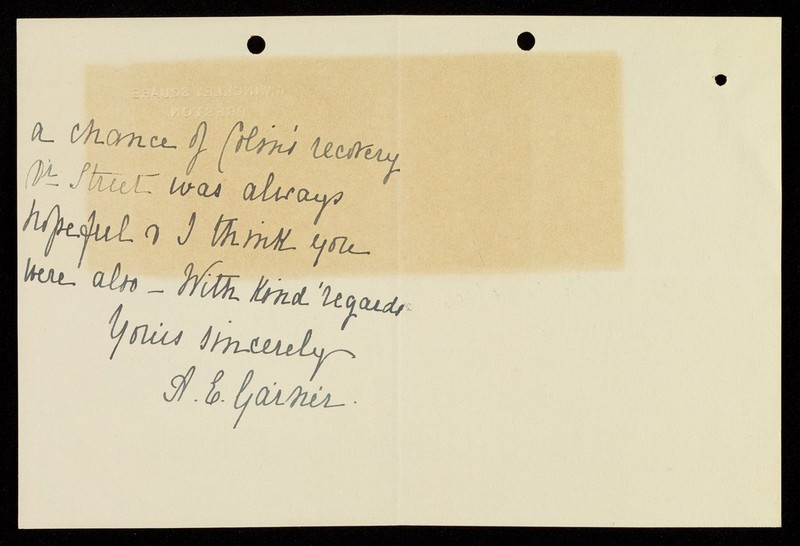 WINCKLEY SQUARE
PRESTON
a chance of Colin's recovery
Dr Street was always
hopeful & I think you
were also – With kind regards
Yours sincerely
A. E. Garner.